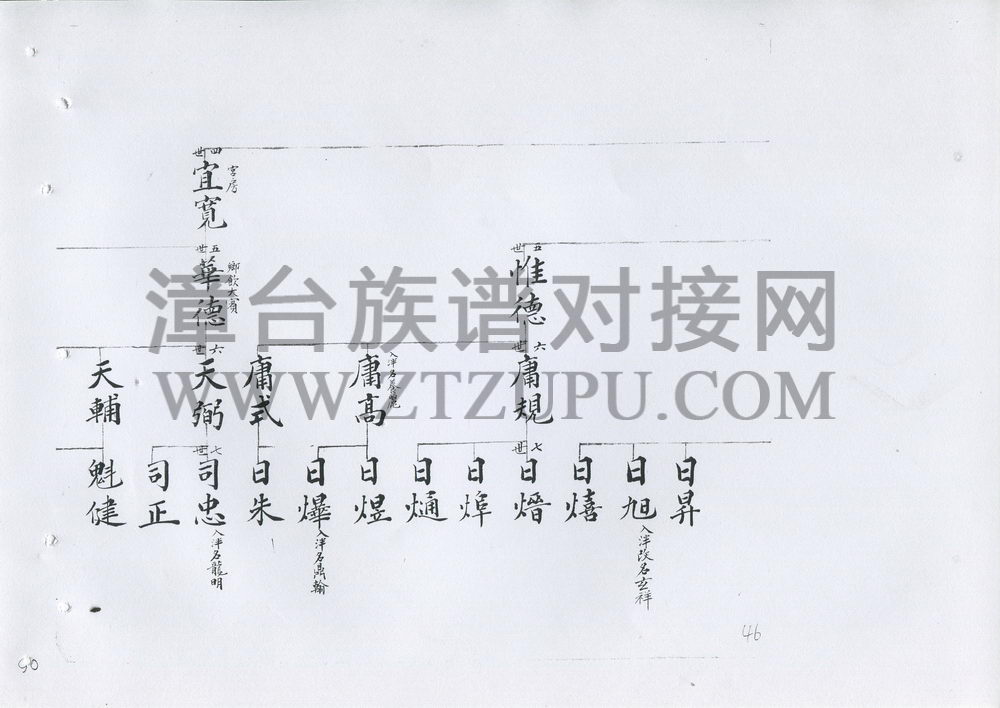 四世
宜寬
宮房
五世
華德
鄉飲大賓
五世
惟德
漳台族谱对接网
WWW.ZTZUPU.COM
六世
天輔
天弼
庸式
庸高
入泮名
六世
庸規
七世
魁健
司正
司忠
入泮名龍明
日朱
日燁
入泮名鼎翰
日煜
七世
日熥
日焠
日熸
日熺
日旭
入泮改名玄祥
日昇
46
50